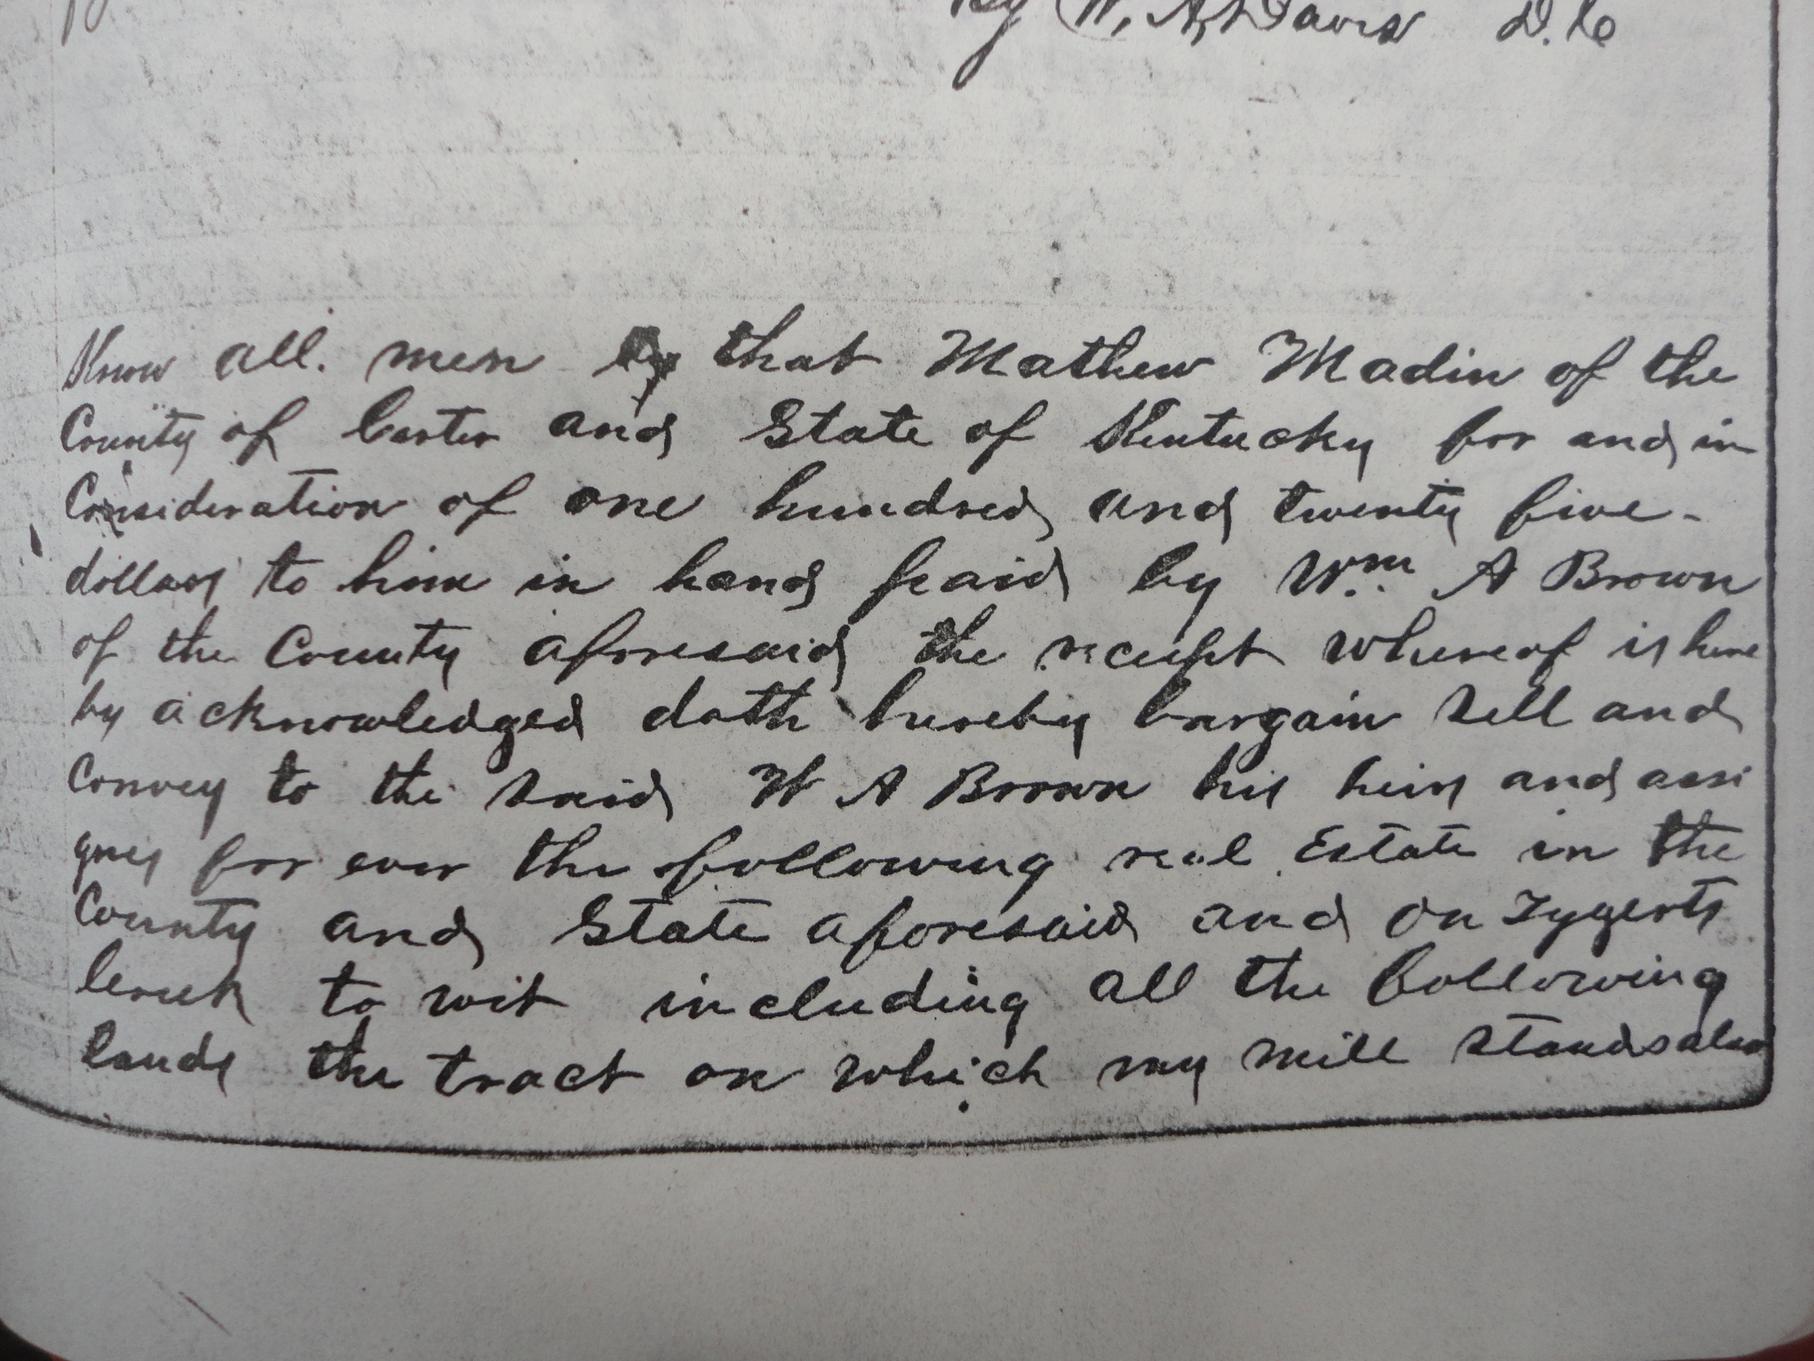 By W. A. Davis D.C
Know all. men by that Mathew Madin of the
County of Carter and State of Kentucky for and in
Consideration of one hundred and twenty five-
dollars to him in hand paid by Wm. A Brown
of the County aforesaid the receipt whereof is here
by acknowledged doth hereby bargain sell and
Convey to the said W A Brown his heirs and assi
gnes for ever the following real Estate in the
County and State aforesaid and on Tygerts
Creek to wit including all the following
lands the tract on which my mill stands also